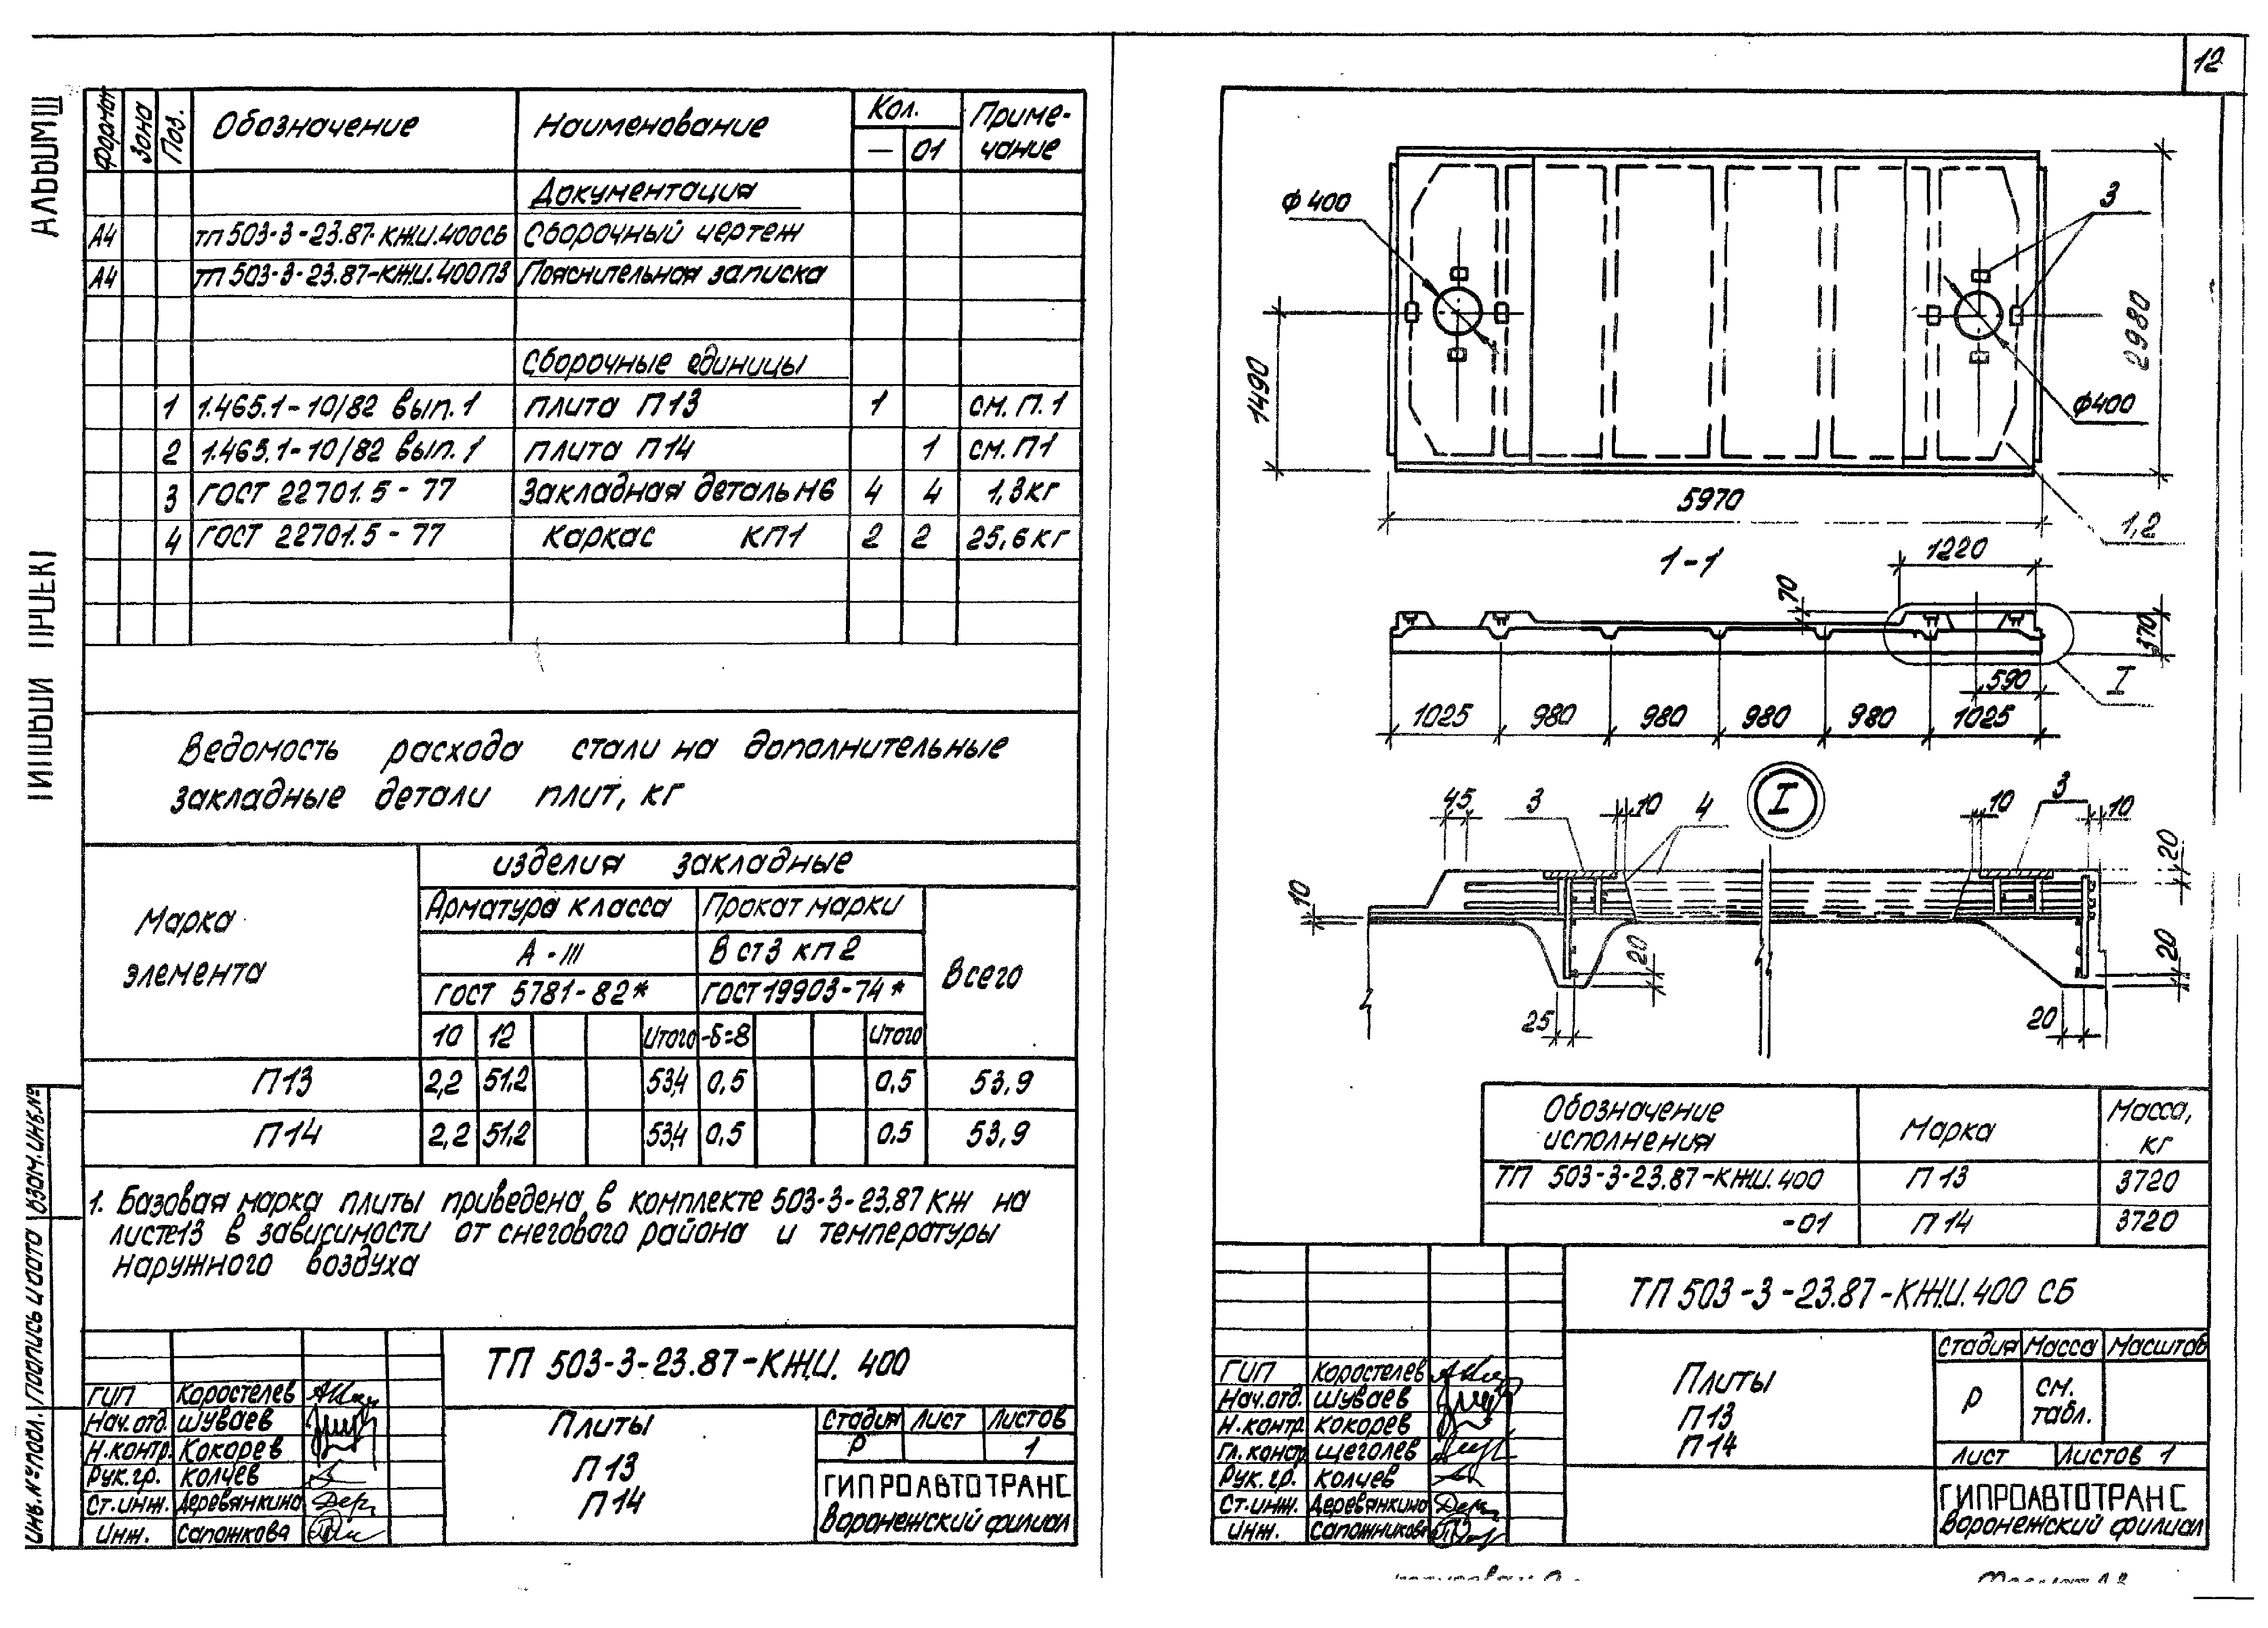 12
Альбом III
Типовой проект
Формат Зона Поз. Обозначение Наименование Кол. Приме-
— 01 чание
Документация
А4 ТП 503-3-23.87-КЖ.И.400СБ Сборочный чертеж
А4 ТП 503-3-23.87-КЖ.И.400ПЗ Пояснительная записка
Сборочные единицы
1 1.465.1-10/82 вып.1 плита П13 1 см. П.1
2 1.465.1-10/82 вып.1 плита П14 1 см. П1
3 ГОСТ 22701.5-77 Закладная деталь М6 4 4 1,3кг
4 ГОСТ 22701.5-77 Каркас КП1 2 2 25,6кг
Ведомость расхода стали на дополнительные
закладные детали плит, кг
Марка
элемента
изделия закладные
Арматура класса Прокат марки
А-III В ст3 кп2
ГОСТ 5781-82* ГОСТ 19903-74*
Всего
10 12 Итого -δ=8 Итого
П13 2,2 51.2 53,4 0,5 0,5 53,9
П14 2,2 51,2 53,4 0,5 0.5 53,9
1. Базовая марка плиты приведена в комплекте 503-3-23.87 КЖ на
листе13 в зависимости от снегового района и температуры
наружного воздуха
Инв.№ подл. Подпись и дата Взам.инв.№
ТП 503-3-23.87-КЖ.И. 400
ГИП Коростелев
Нач.отд. Шуваев
Н.контр. Кокорев
Рук.гр. Колчев
Ст.инж. Деревянкина
Инж. Сапожкова
Плиты
П13
П14
Стадия Лист Листов
Р 1
ГИПРОАВТОТРАНС
Воронежский филиал
ф400
3
1490
2980
ф400
5970
1,2
1-1
1220
70
370
590
I
1025 980 980 980 980 1025
I
45 3 10 4 10 3 10
20
10
20
20
25
20
Обозначение
исполнения
Марка
Масса,
кг
ТП 503-3-23.87-КЖ.И.400 П13 3720
-01 П14 3720
ТП 503-3-23.87-КЖ.И.400 СБ
ГИП Коростелев
Нач.отд. Шуваев
Н.контр. Кокорев
Гл.констр. Щеголев
Рук.гр. Колчев
Ст.инж. Деревянкина
Инж. Сапожникова
Плиты
П13
П14
Стадия Масса Масштаб
Р см.
табл.
Лист Листов 1
ГИПРОАВТОТРАНС
Воронежский филиал